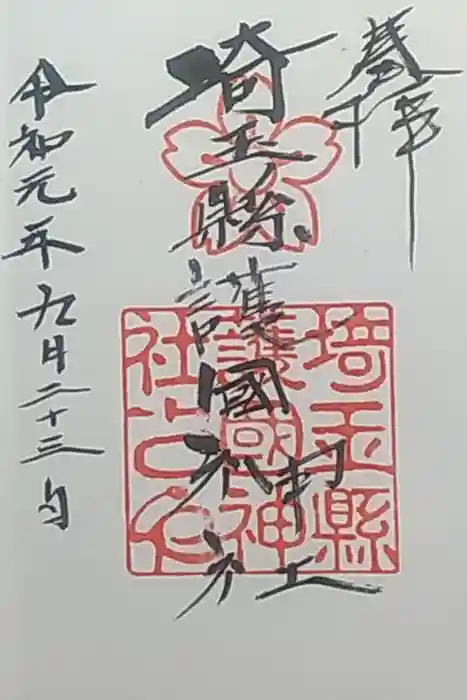 奉拝
埼玉縣護國神社
埼玉縣護國神社之印
令和元年九月二十三日